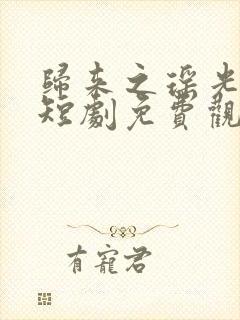 歸来之瑶光
短劇免費觀
有寵君